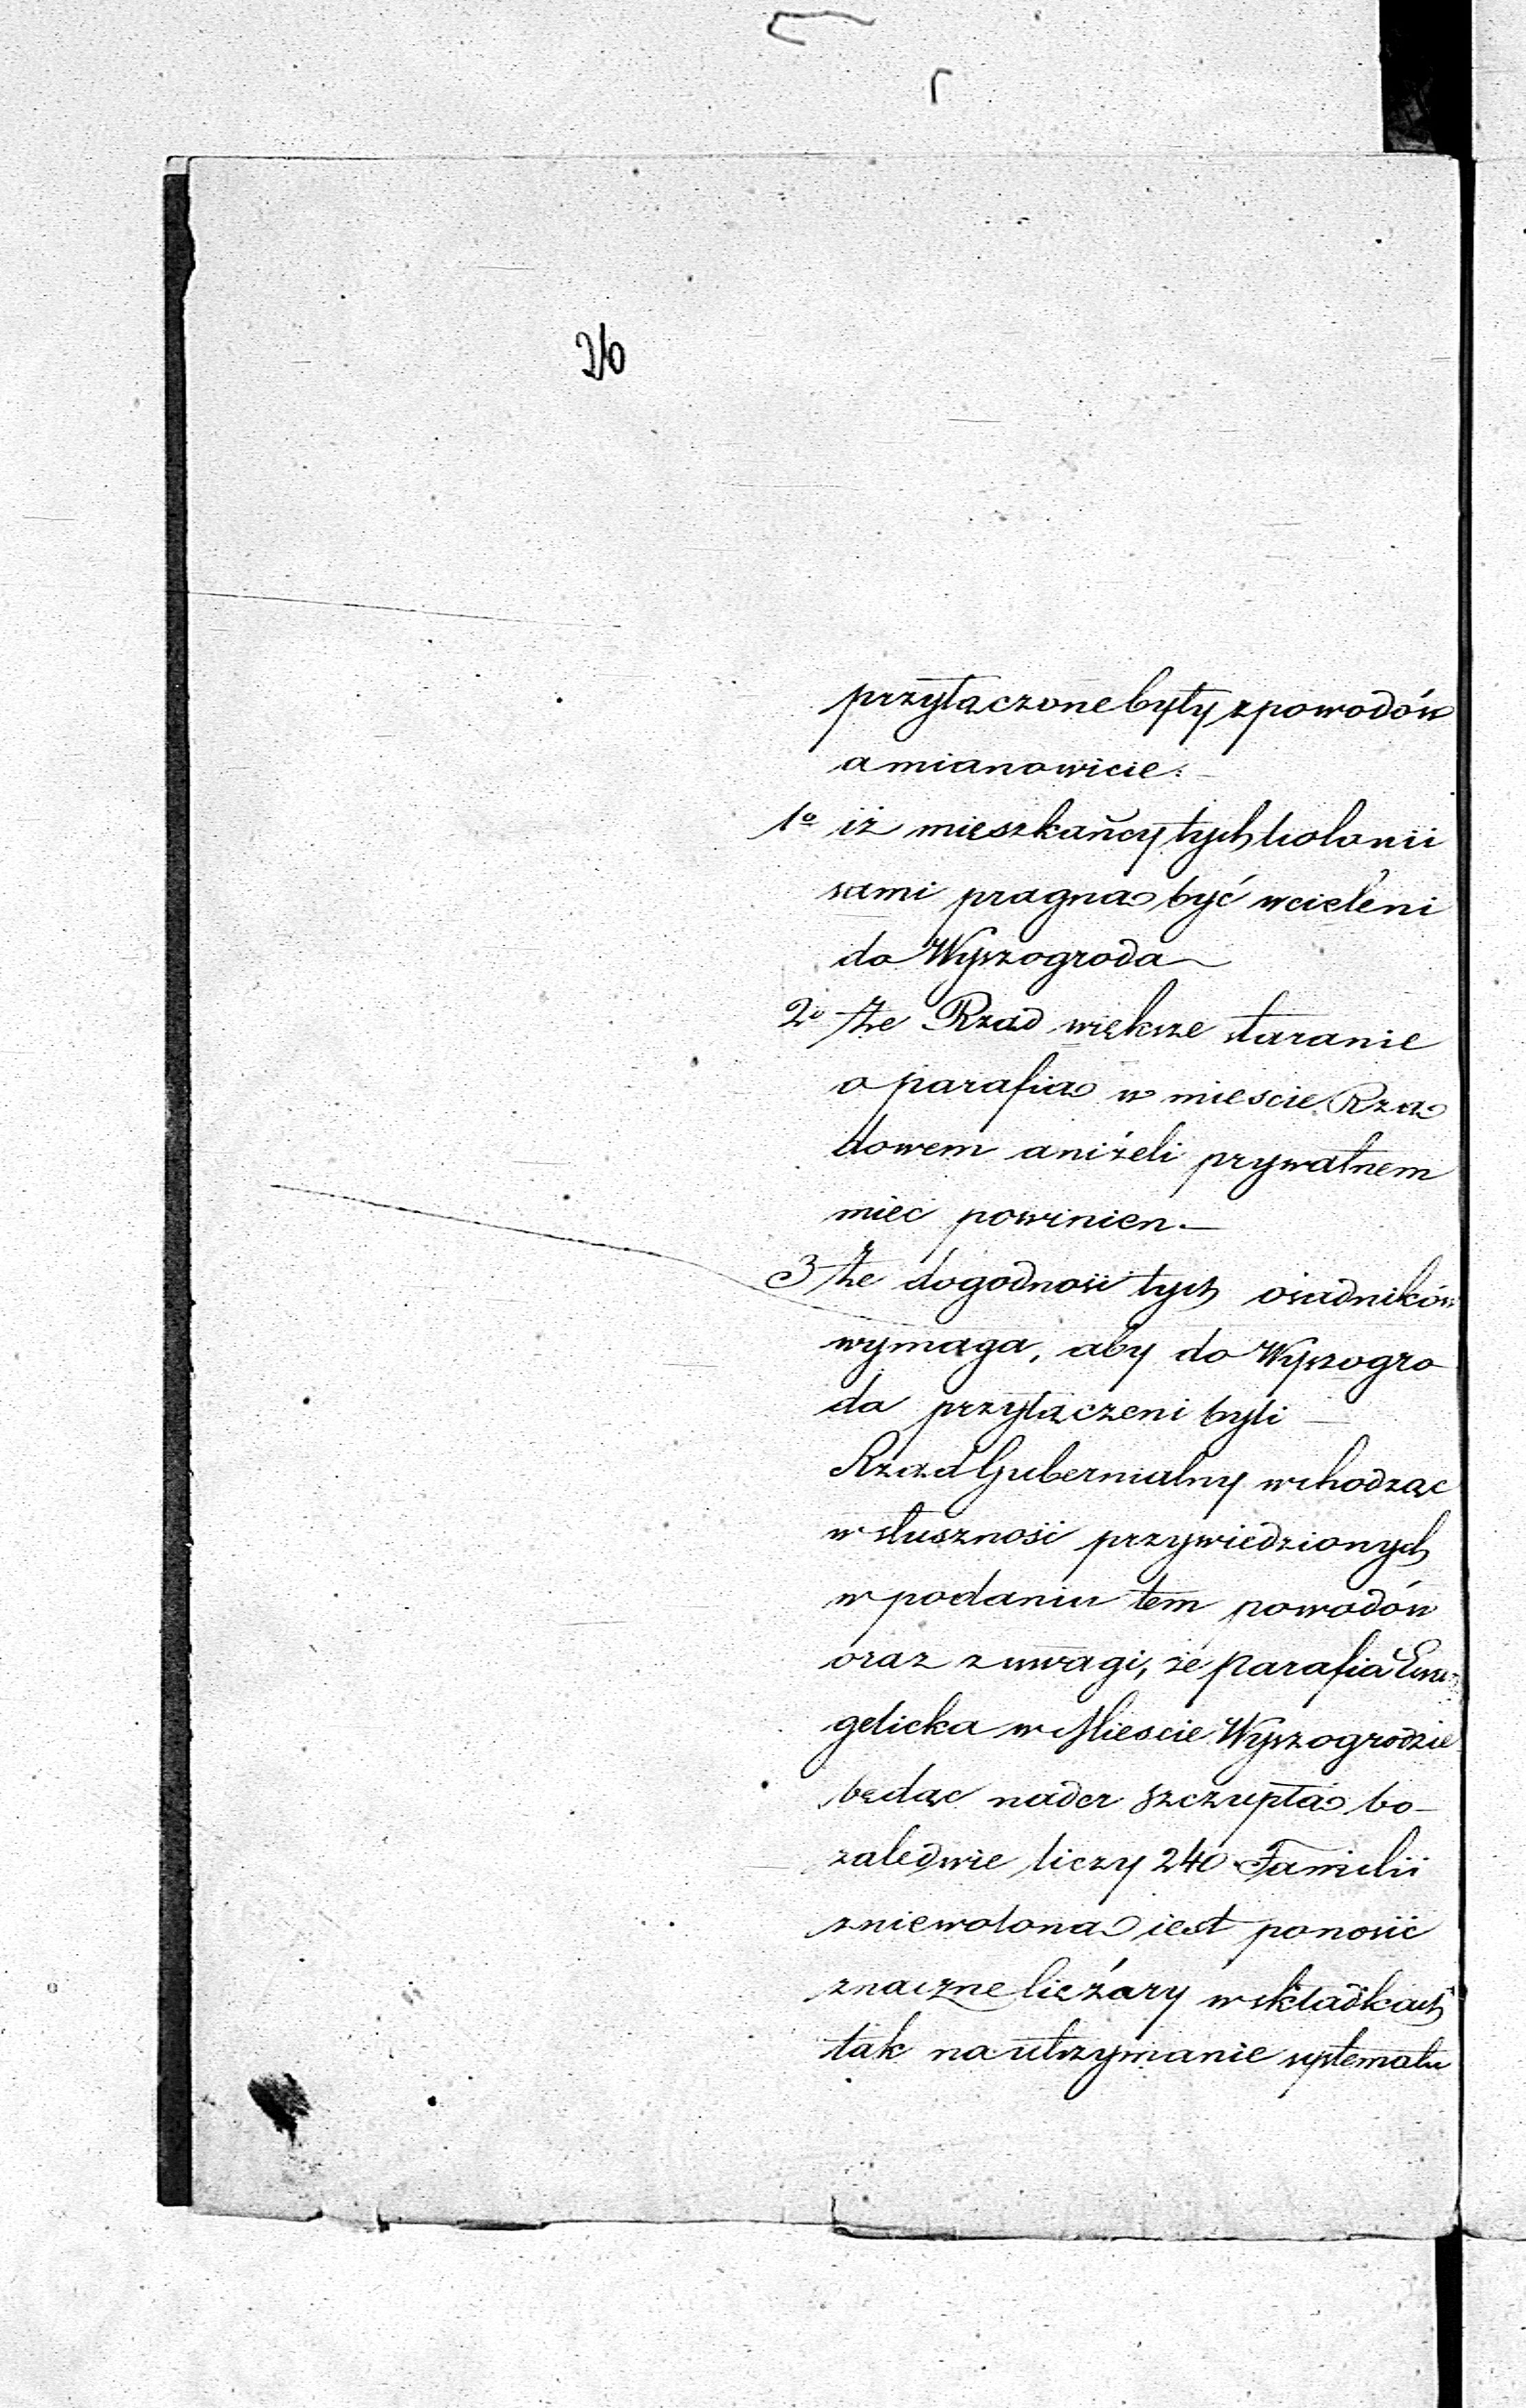 26
przyłączone były z powodów
a mianowicie:
1o iż mieszkańcy tych kolonii
sami pragną być wcieleni
do Wyszogroda
2o Że Rząd większe staranie
o parafią w miescie Rzą
dowem aniżeli prywatnem
miec powinien. —
3 Że dogodność tych osadników
wymaga, aby do Wyszogro
da przyłączeni byli —
Rząd Gubernialny wchodząc
w słuszność przywiedzionych
w podaniu tem powodów
oraz z uwagi, że parafia Ewa
gelicka w Mieście Wyszogrodzie
będąc nader szczupłą bo-
zaledwie liczy 240 Familii
zniewoloną iest ponosić
znaczne ciężary w składkach
tak na utrzymanie systematu